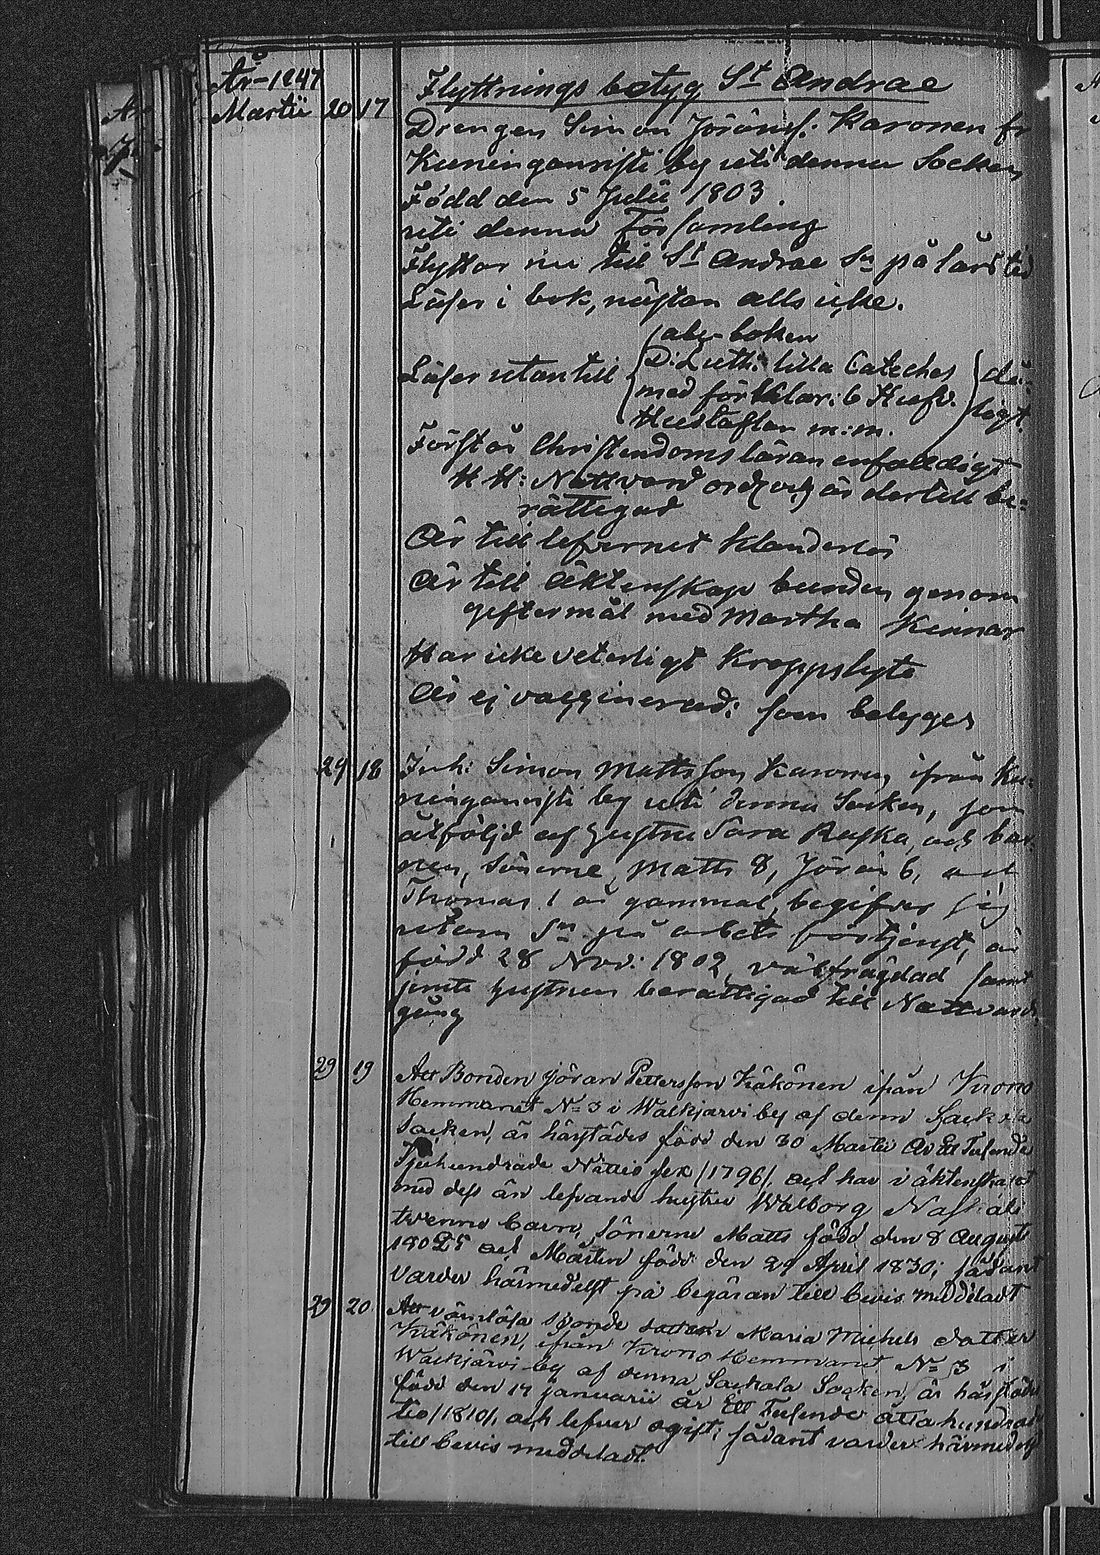 År 1847
Martii 20 17 Flyttnings betyg St Andrae
Drengen Simon Jöransf: Karonen fr
Kuninganristi by uti denna Socken
Född den 5 Julii 1803
uti denna Församling
Flyttar nu till St Andrae Sn på lårs tid
Läser i bok, nästan alls icke.
abc boken
Läser utantill D: Luth: lilla Cateches då:
med förklar: 6 Hufv. ligt.
Hustaflan m:m.
Förstår Christendoms läran enfaldigt
H H: Nattvard och är dertill be:
rättigad
Är till lefvernet Klanderlös
Är till Äktenskap bunden genom
giftermål med Martha Kinnar
Har icke veterligt Kroppslyte
Är ej vaccinerad; som betyges
29 18 Inh: Simon Mattsson Karonen ifrån Ku
ninganristi by uti denna Socken, som
åtföljd af hustru Sara Rapka, och bar
nen, Sönerne, Matts 8, Jöran 6, och
Thomas 1 år gammal, begifver sig
utom Sn på arbets förtjenst, är
född 28 Nov: 1802, välfrägdad samt
jemte hustrun berättigad till Nattvards
gång
29 19 Att Bonden Jöran Pettersson Käkönen ifrån Krono
Hemmanet No 3 i Walkjärvi by af denna Sackola
Socken, är härstädes född den 30 Martii År Ett Tusende
Sjuhundrade Nittio sex (1796), och har i äktenskapet
med dess än lefvande hustru Walborg
tvenne barn, sönerne Matts född den 8 Augusti
1825 och Mårten född den 29 April 1830; sådant
varder härmedelst på begäran till bevis meddeladt
29 20 Att värnlösa Bonde dottern Maria Michels dotter
Käkönen, ifrån Krono Hemmanet No 3 i
Walkjärvi by af denna Sackala Socken, är härstädes
född den 14 Januarii År Ett Tusende åttahundrade
tio (1810), och lefver ogift; sådant varder härmedelst
till bevis meddeladt.